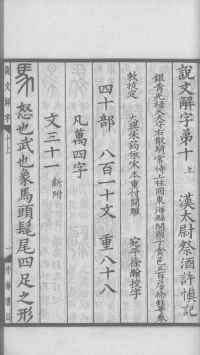 說文解字弟十上
漢太尉祭酒許愼記
銀青光祿大夫守右散騎常侍上柱國東海縣開國子食邑五百戶臣徐鉉等奉
敕校定
四十部 八百一十文 重八十八
凡萬四字
文三十一新附
怒也武也象馬頭髦尾四足之形
說文解字